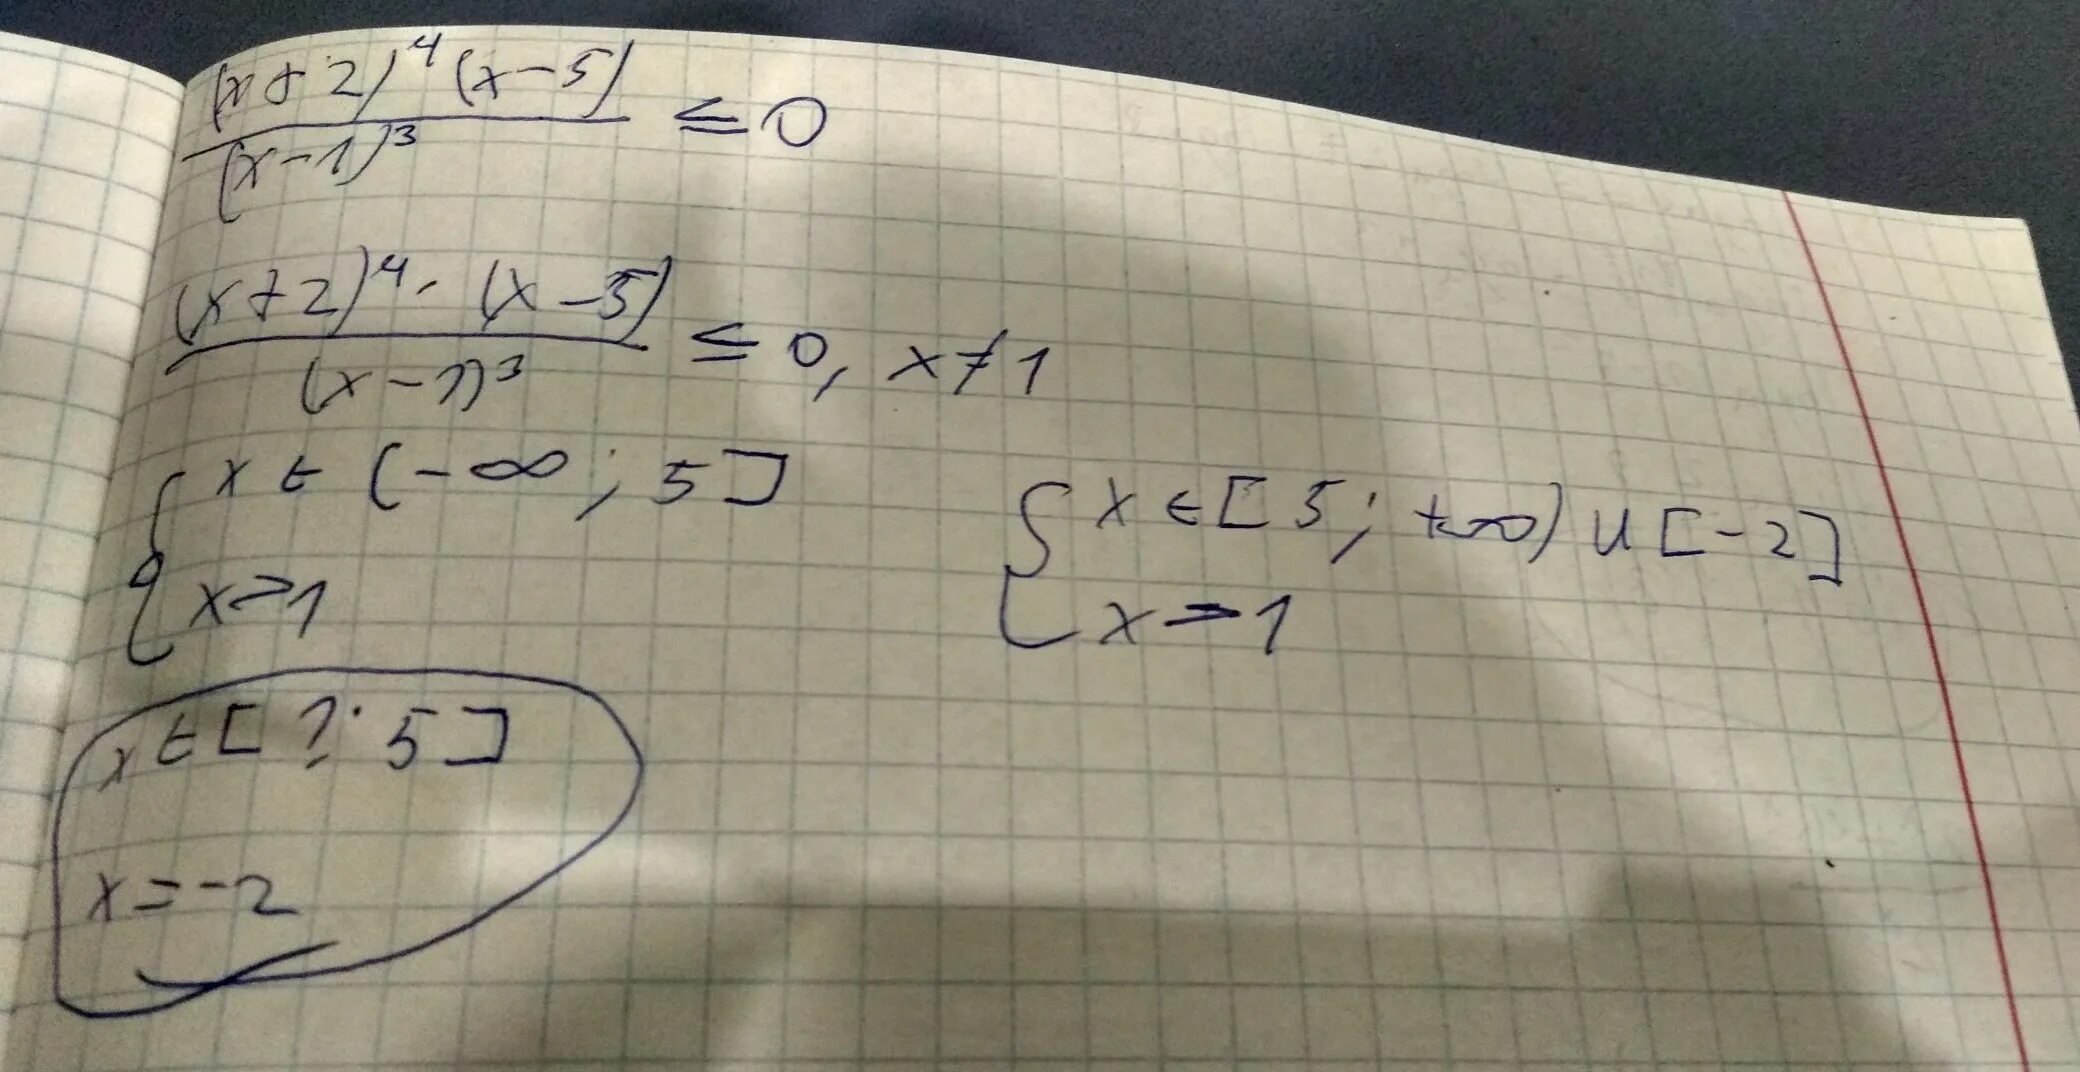 (x+2)⁴(x-5)
(x-1)³ ≤ 0
(x+2)⁴ · (x-5)
(x-1)³ ≤ 0, x≠1
{ x ∈ (-∞; 5]
x>1
{ x ∈ [5; +∞) ∪ [-2]
x>1
x ∈ [1; 5]
x=-2